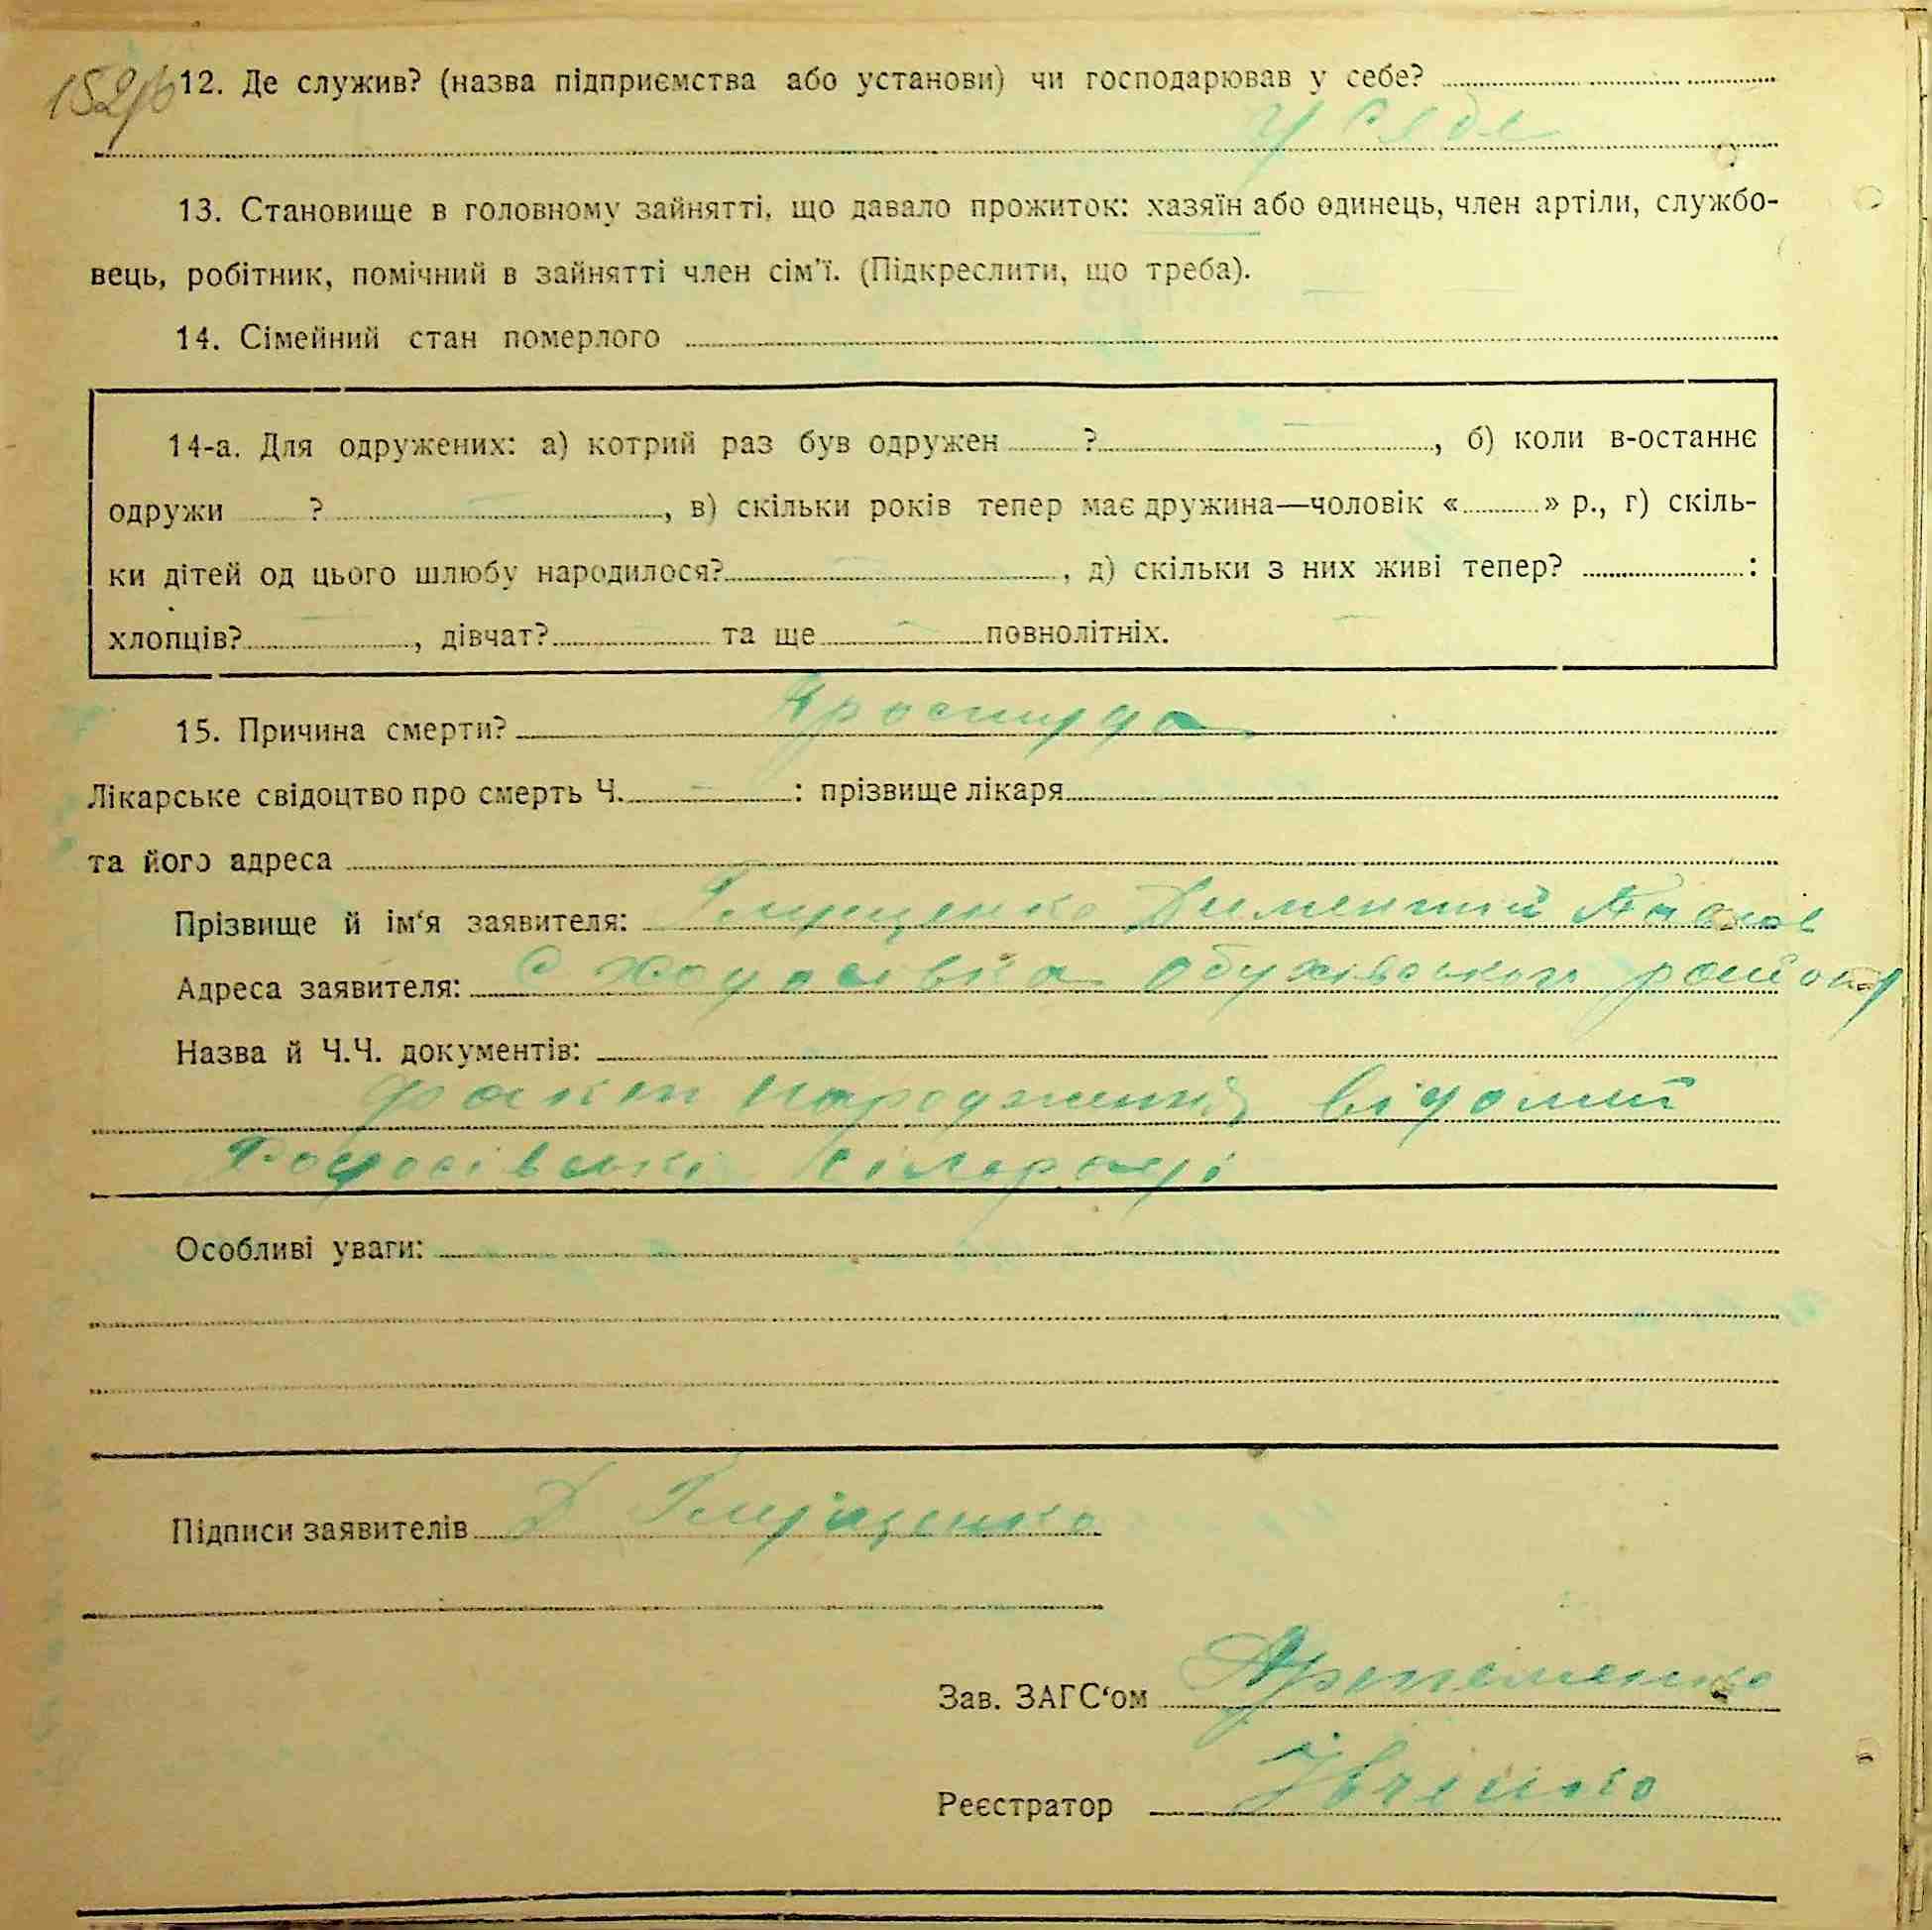 12. Де служив? (назва підприємства або установи) чи господарював у себе?
у себе
13. Становище в головному зайнятті, що давало прожиток: хазяїн або одинець, член артіли, службо-
вець, робітник, помічний в зайнятті член сім'ї. (Підкреслити, що треба).
14. Сімейний стан померлого
14-а. Для одружених: а) котрий раз був одружен ?, б) коли в-останнє
одружи ?, в) скільки років тепер має дружина—чоловік « » р., г) скіль-
ки дітей од цього шлюбу народилося?, д) скільки з них живі тепер? :
хлопців?, дівчат? та ще повнолітніх.
15. Причина смерти? Простуда
Лікарське свідоцтво про смерть Ч. : прізвище лікаря
та його адреса
Прізвище й ім'я заявителя:
Адреса заявителя: С Ходосівка Обухівського району
Назва й Ч.Ч. документів:
факт народження відомий
Ходосівські сільраді
Особливі уваги:
Підписи заявителів Д
Зав. ЗАГС'ом
Реєстратор Івченко